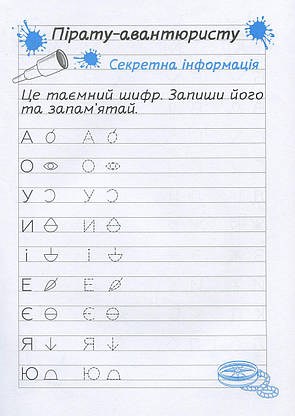 Пірату-авантюристу
Секретна інформація
Це таємний шифр. Запиши його
та запам'ятай.
А А
О
У У
И И
і і
Е Е
Є Є
Я Я
Ю Ю